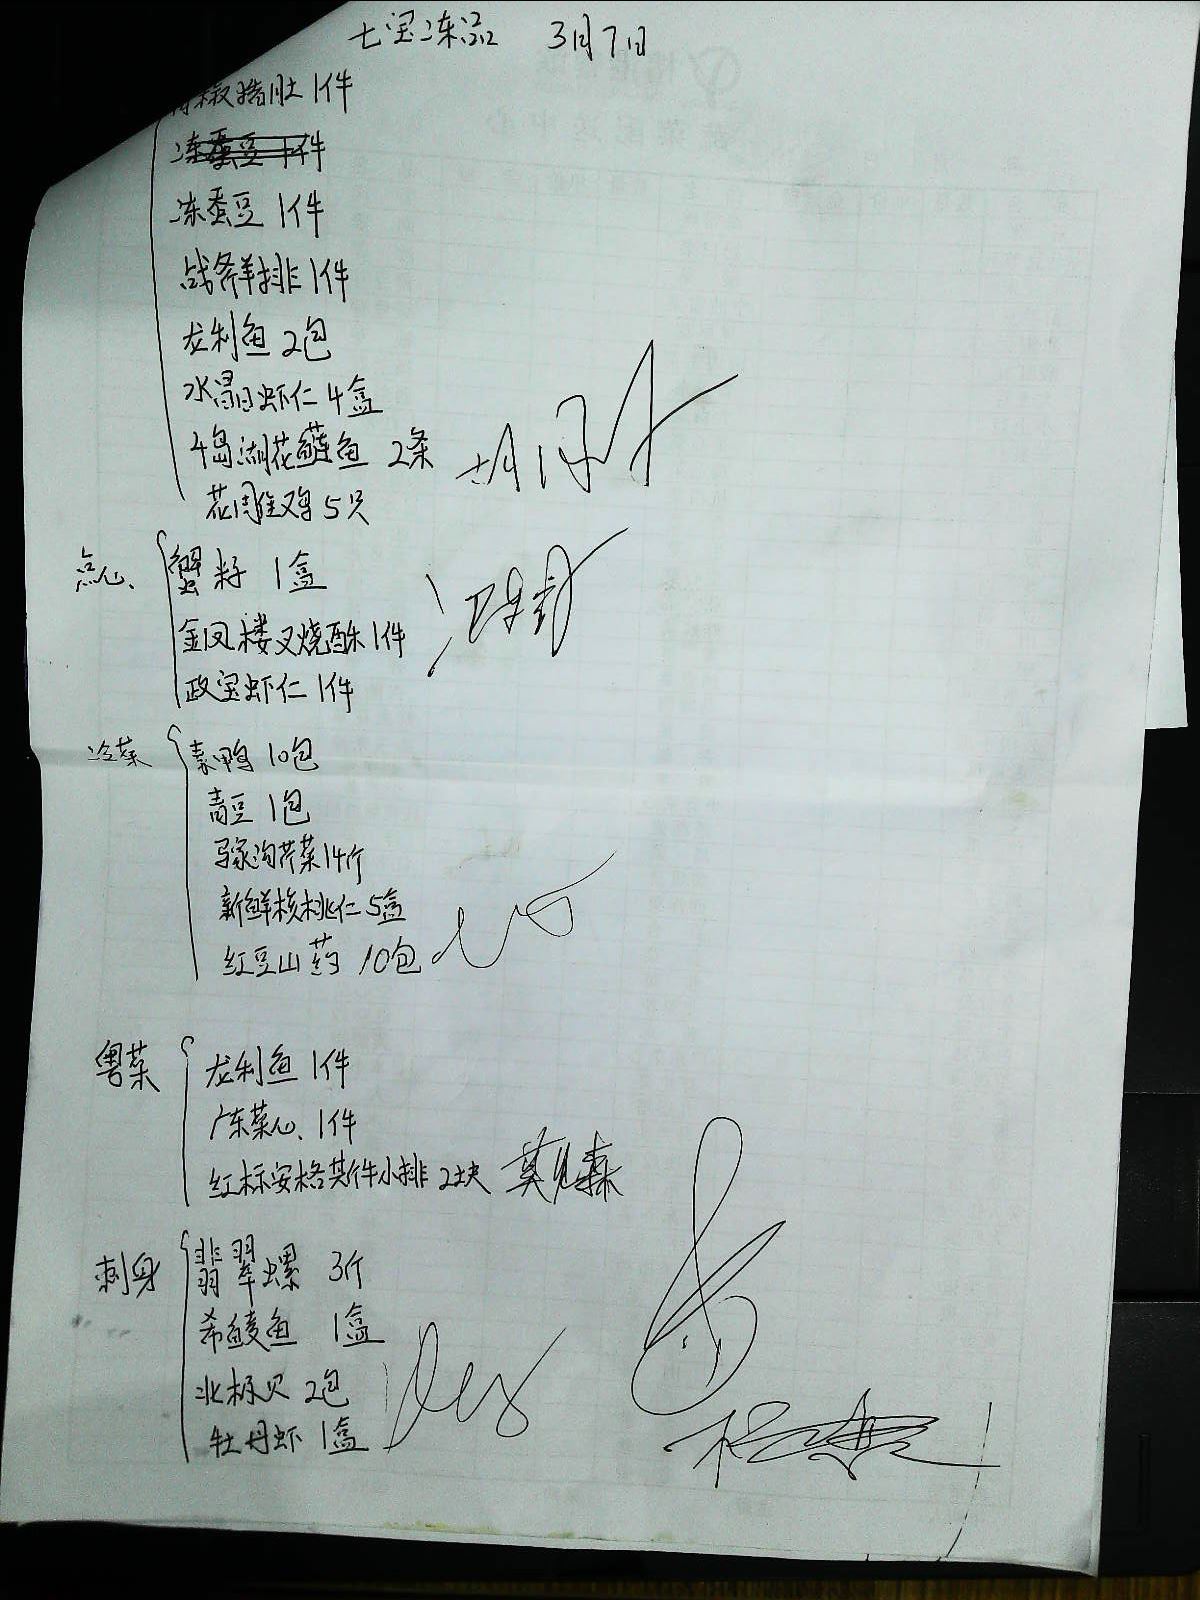 七宝冻品 3月7日
椒猪肚 1件
冻蚕豆 1件
冻蚕豆 1件
战斧羊排 1件
龙利鱼 2包
水晶虾仁 4盒
千岛湖花鲢鱼 2条
花雕鸡 5只
点心、
蟹籽 1盒
金凤楼叉烧酥 1件
政宝虾仁 1件
冷菜
素鸭 10包
青豆 1包
马家沟芹菜 14斤
新鲜核桃仁 5盒
红豆山药 10包
粤菜
龙利鱼 1件
广东菜心、1件
红标安格斯牛小排 2块
刺身
翡翠螺 3斤
希鲮鱼 1盒
北极贝 2包
牡丹虾 1盒